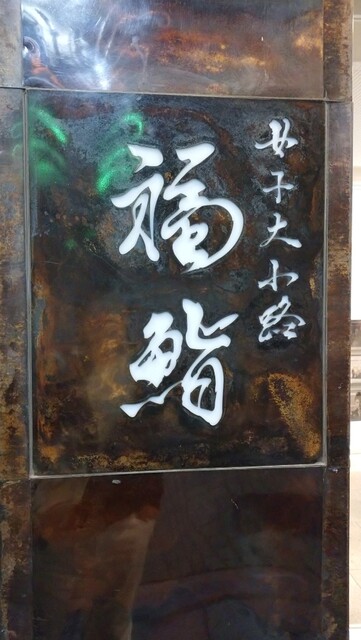 女子大小路
福鮨